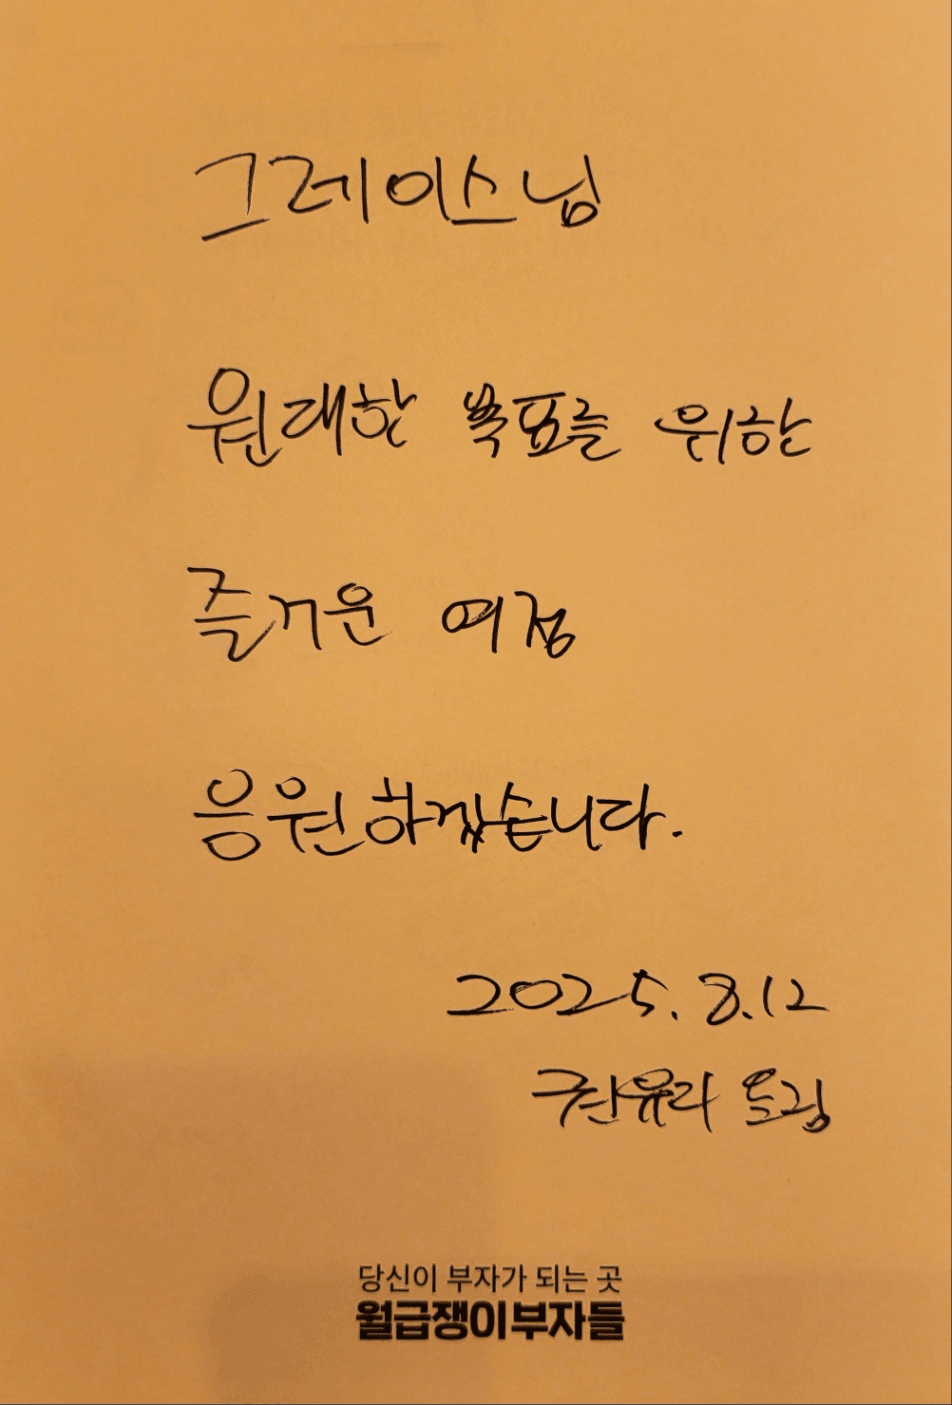 그레이스님
원대한 목표를 위한
즐거운 여정
응원하겠습니다.
2025. 8.12
권유라 드림
당신이 부자가 되는 곳
월급쟁이부자들